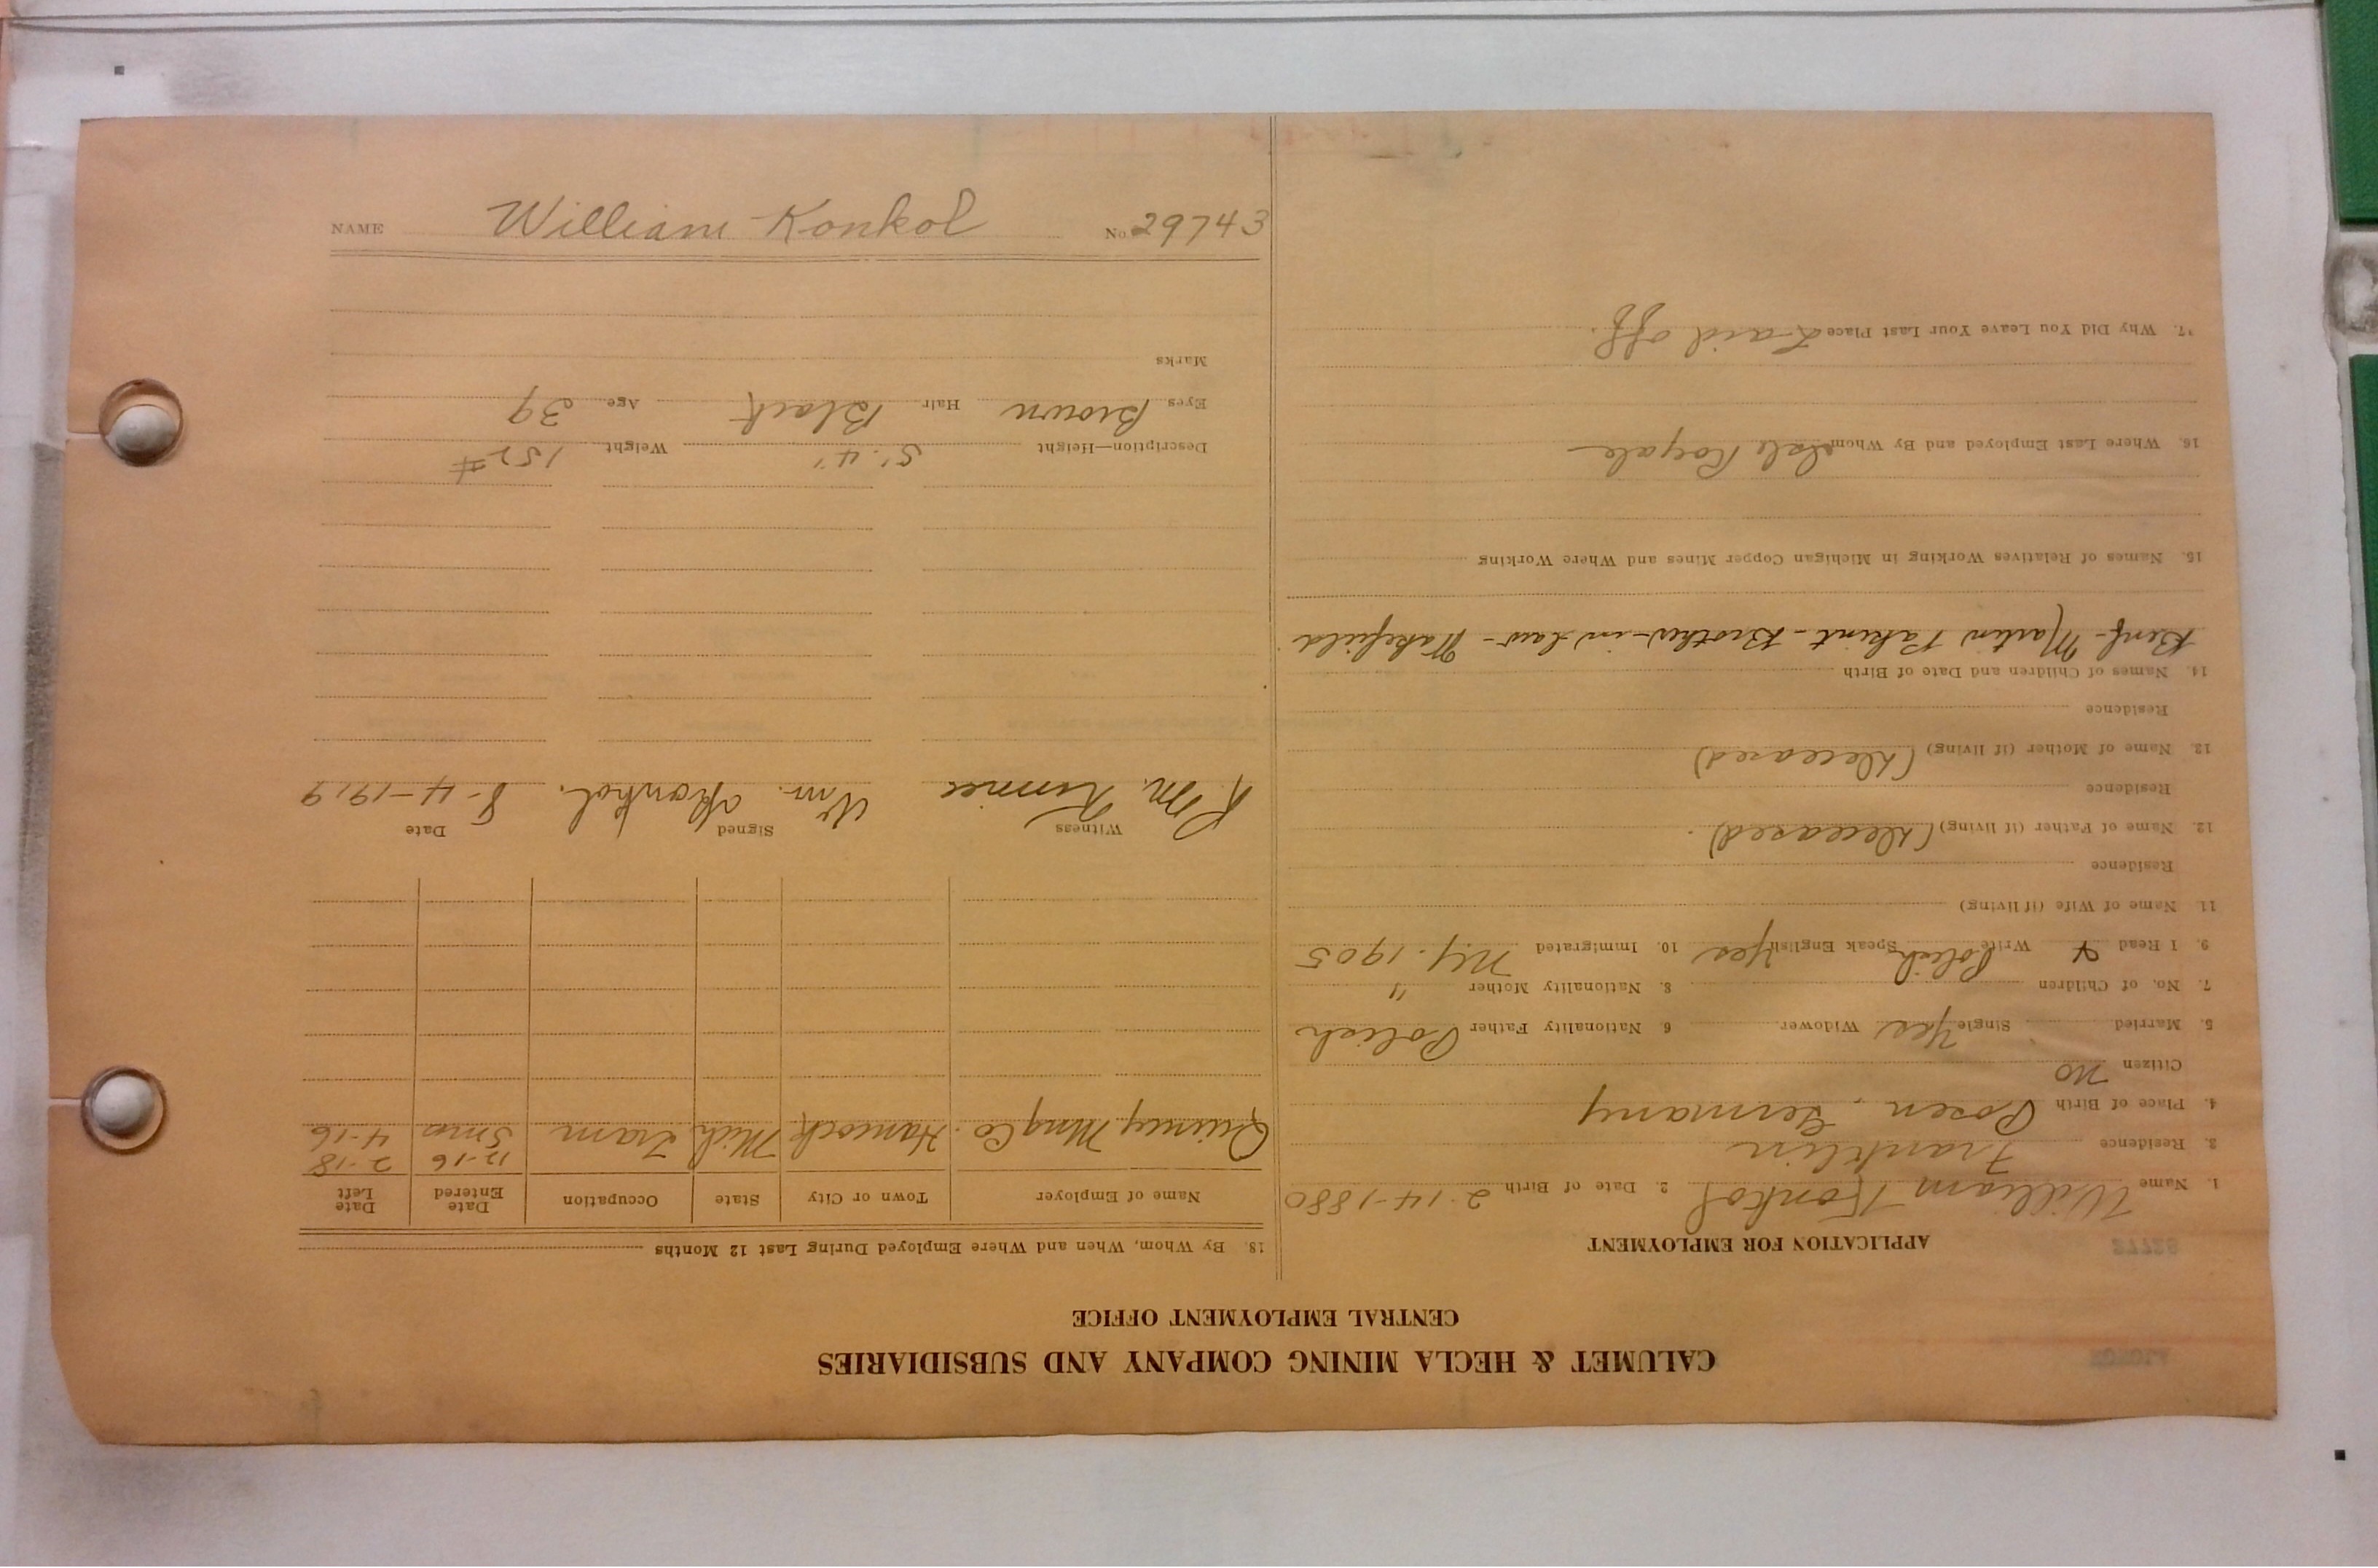 CALUMET & HECLA MINING COMPANY AND SUBSIDIARIES
CENTRAL EMPLOYMENT OFFICE
APPLICATION FOR EMPLOYMENT
1. Name William Konkol 2. Date of Birth 2-14-1880
3. Residence Franklin
4. Place of Birth Posen, Germany
Citizen no
5. Married Single Yes Widower 6 Nationality Father Polish
7. No. of Children 8. Nationality Mother "
9. I Read & Write Polish Speak English Yes 10. Immigrated N.Y. 1905
11. Name of Wife (if living)
Residence
12. Name of Father (if living) (Deceased).
Residence
13. Name of Mother (if living) (Deceased)
Residence
14. Names of Children and Date of Birth
Benf- Martin - Brother-in-law - Wakefield
15. Names of Relatives Working in Michigan Copper Mines and Where Working
16. Where Last Employed and By Whom Isle Royale
17. Why Did You Leave Your Last Place Laid off.
18. By Whom, When and Where Employed During Last 12 Months
Name of Employer Town or City State Occupation Date Entered Date Left
12-16 2-18
Quincy Mng Co. Hancock Mich. Tram 5 mos 4-16
Witness Signed Date
R. M. Wm. Konkol. 8-4-1919
Description—Height 5'.4" Weight 152#
Eyes Brown Hair Black Age 39
Marks
NAME William Konkol No. 29743